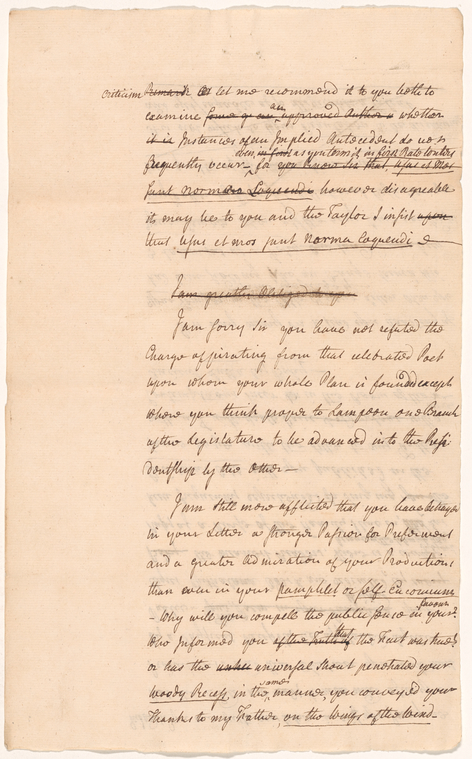 criticism Remark let me recommend it to you both to
examine some of our an approved Author whether
it is Instances of an Implied Antecedent do not
even in first as you term it in first Rate writers
frequently occur for you know Sir that, Usus et Mos
sunt Norma Loquendi however disagreeable
it may be to you and the Taylor I insist upon
that Usus et mos sunt Norma loquendi
I am greatly obliged to you
I am sorry Sir you have not refuted the
Charge of pirating from that celebrated Poet
upon whom your whole Plan is founded except
where you think proper to Lampoon one Branch
of the Legislature to be advanced into the Presi-
dentship by the other—
I am still more afflicted that you have betrayed
in your Letter a stronger Passion for Preferment
and a greater Admiration of your Productions
than even in your pamphlet or self Encomium
- Why will you compell the public Sense in your favour?
Who Informed you of the Truth that the Fact was true?
or has the universal Shout penetrated your
Woody Recess, in the same manner, you conveyed your
Thanks to my Father, on the Wings of the Wind—